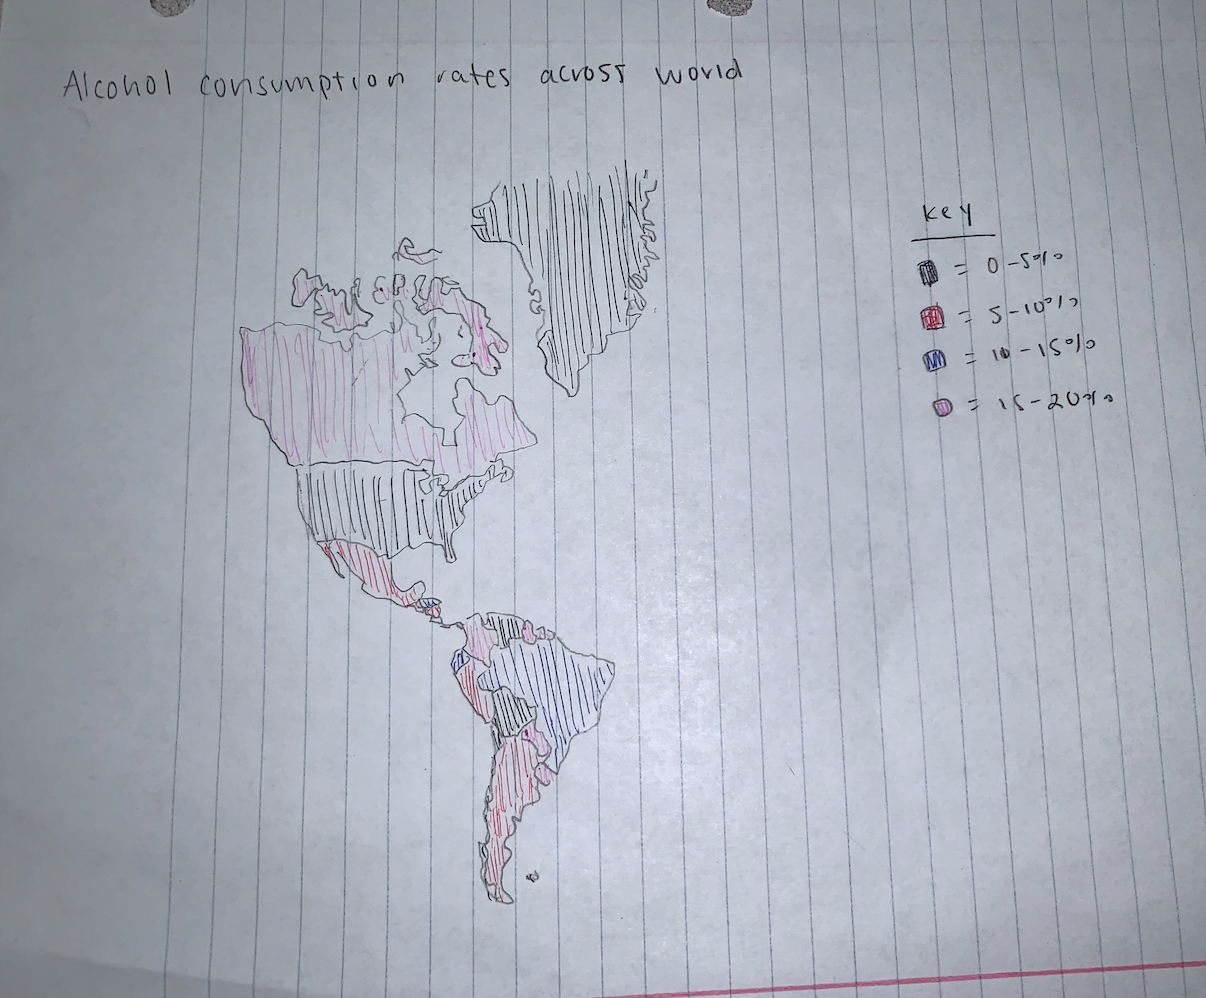 Alcohol consumption rates across world
key
= 0-5%
= 5-10%
= 10-15%
= 15-20%